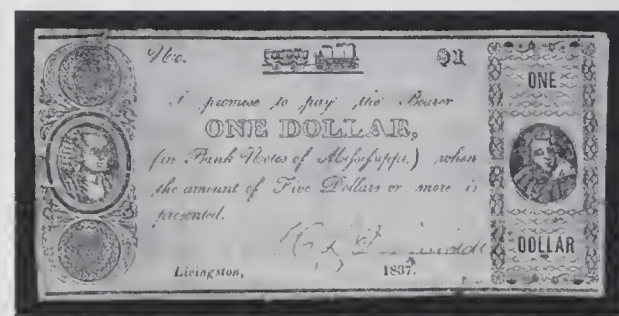 No. $1 ONE
I promise to pay the Bearer
ONE DOLLAR,
(in Bank Notes of Mississippi,) when
the amount of Five Dollars or more is
presented.
Livingston, 1837. DOLLAR